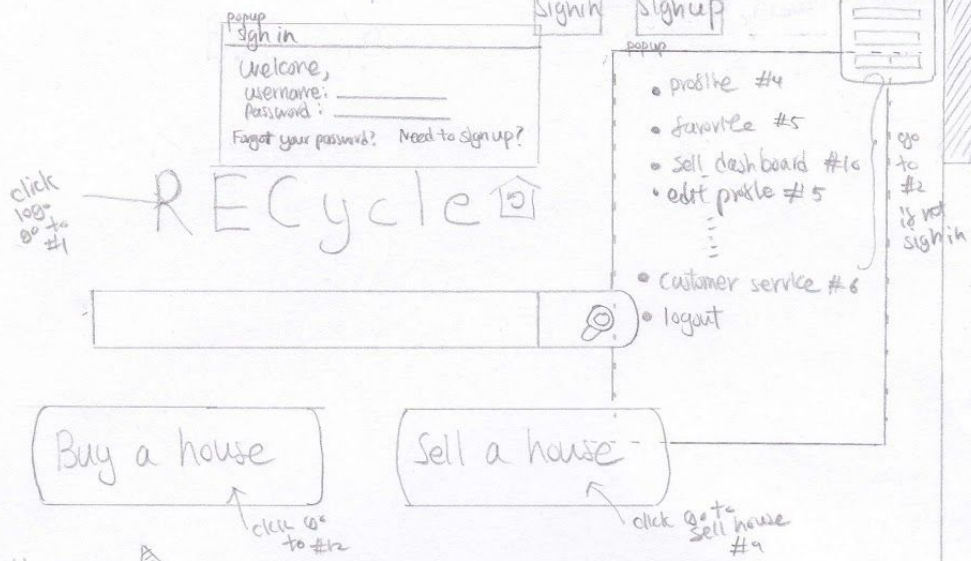 Signin
Signup
popup
sign in
welcome,
username:
Password:
Forgot your password? Need to sign up?
popup
• profile #4
• favorite #5
• sell dashboard #10
• edit profile #5
• customer service #6
• logout
go
to
#2
if not
sign in
click
logo
go to
#1
RECycle
Buy a house
click go
to #12
Sell a house
click go to
sell house
#9